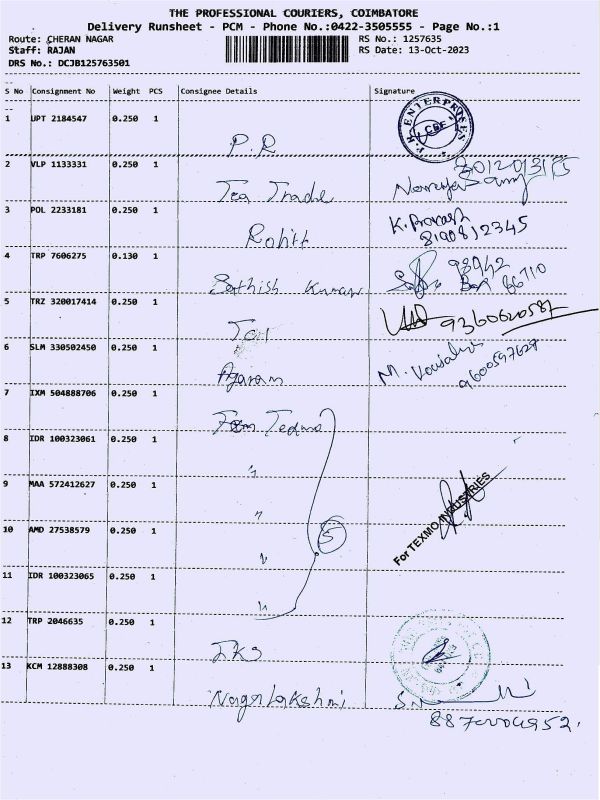 THE PROFESSIONAL COURIERS, COIMBATORE
Delivery Runsheet - PCM - Phone No.:0422-3505555 - Page No.:1
Route: CHERAN NAGAR
RS No.: 1257635
Staff: RAJAN
RS Date: 13-Oct-2023
DRS No.: DCJB125763501
S No Consignment No Weight PCS Consignee Details Signature
1 UPT 2184547 0.250 1
P.R
ENTERPRISES
CBE
2 VLP 1133331 0.250 1
Tea Trade
3 POL 2233181 0.250 1
Rohit
K. Prakash
8190812345
4 TRP 7606275 0.130 1
Sathish Kumar
98942
66710
5 TRZ 320017414 0.250 1
9360620587
6 SLM 330502450 0.250 1
Agaram
M.
9600597627
7 IXM 504888706 0.250 1
Texmo
8 IDR 100323061 0.250 1
"
9 MAA 572412627 0.250 1
"
For TEXMO INDUSTRIES
10 AMD 27538579 0.250 1
"
5
11 IDR 100323065 0.250 1
"
12 TRP 2046635 0.250 1
13 KCM 12888308 0.250 1
Nagalakshmi